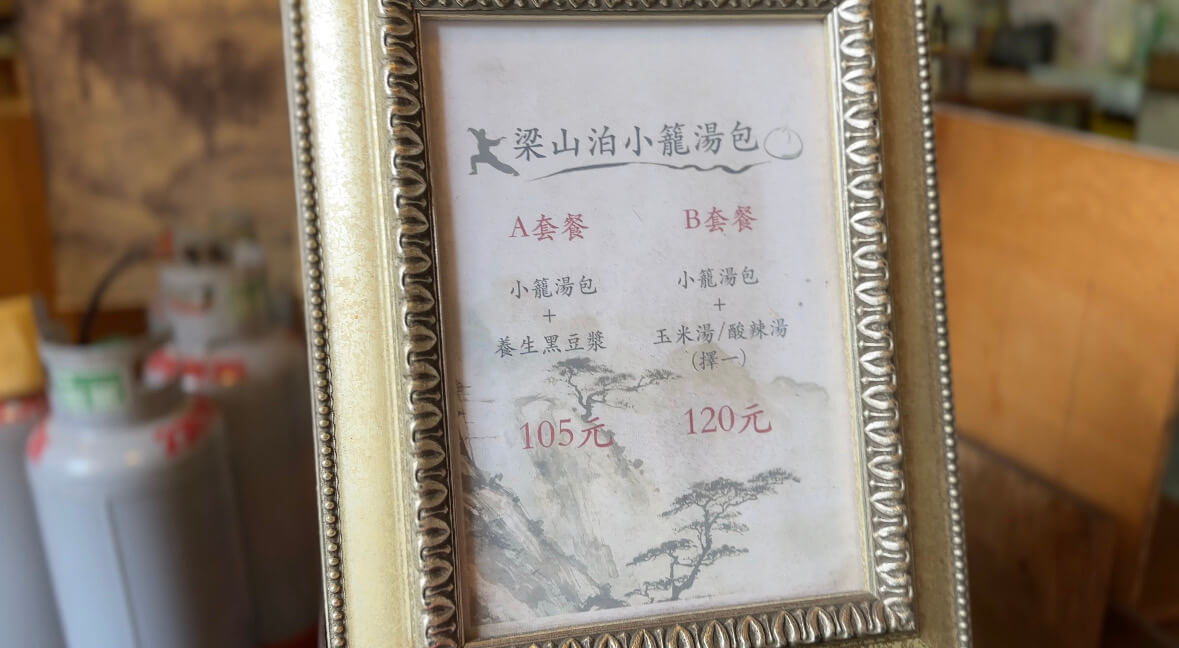 梁山泊小籠湯包
A套餐
小籠湯包
+
養生黑豆漿
105元
B套餐
小籠湯包
+
玉米湯/酸辣湯
(擇一)
120元